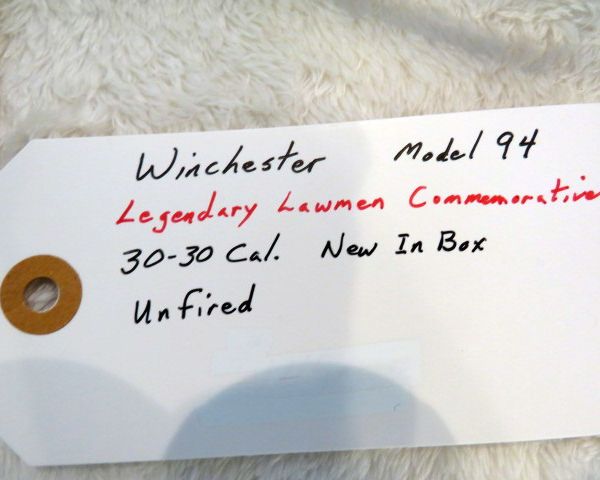 Winchester Model 94
Legendary Lawmen Commemorative
30-30 Cal. New In Box
Unfired